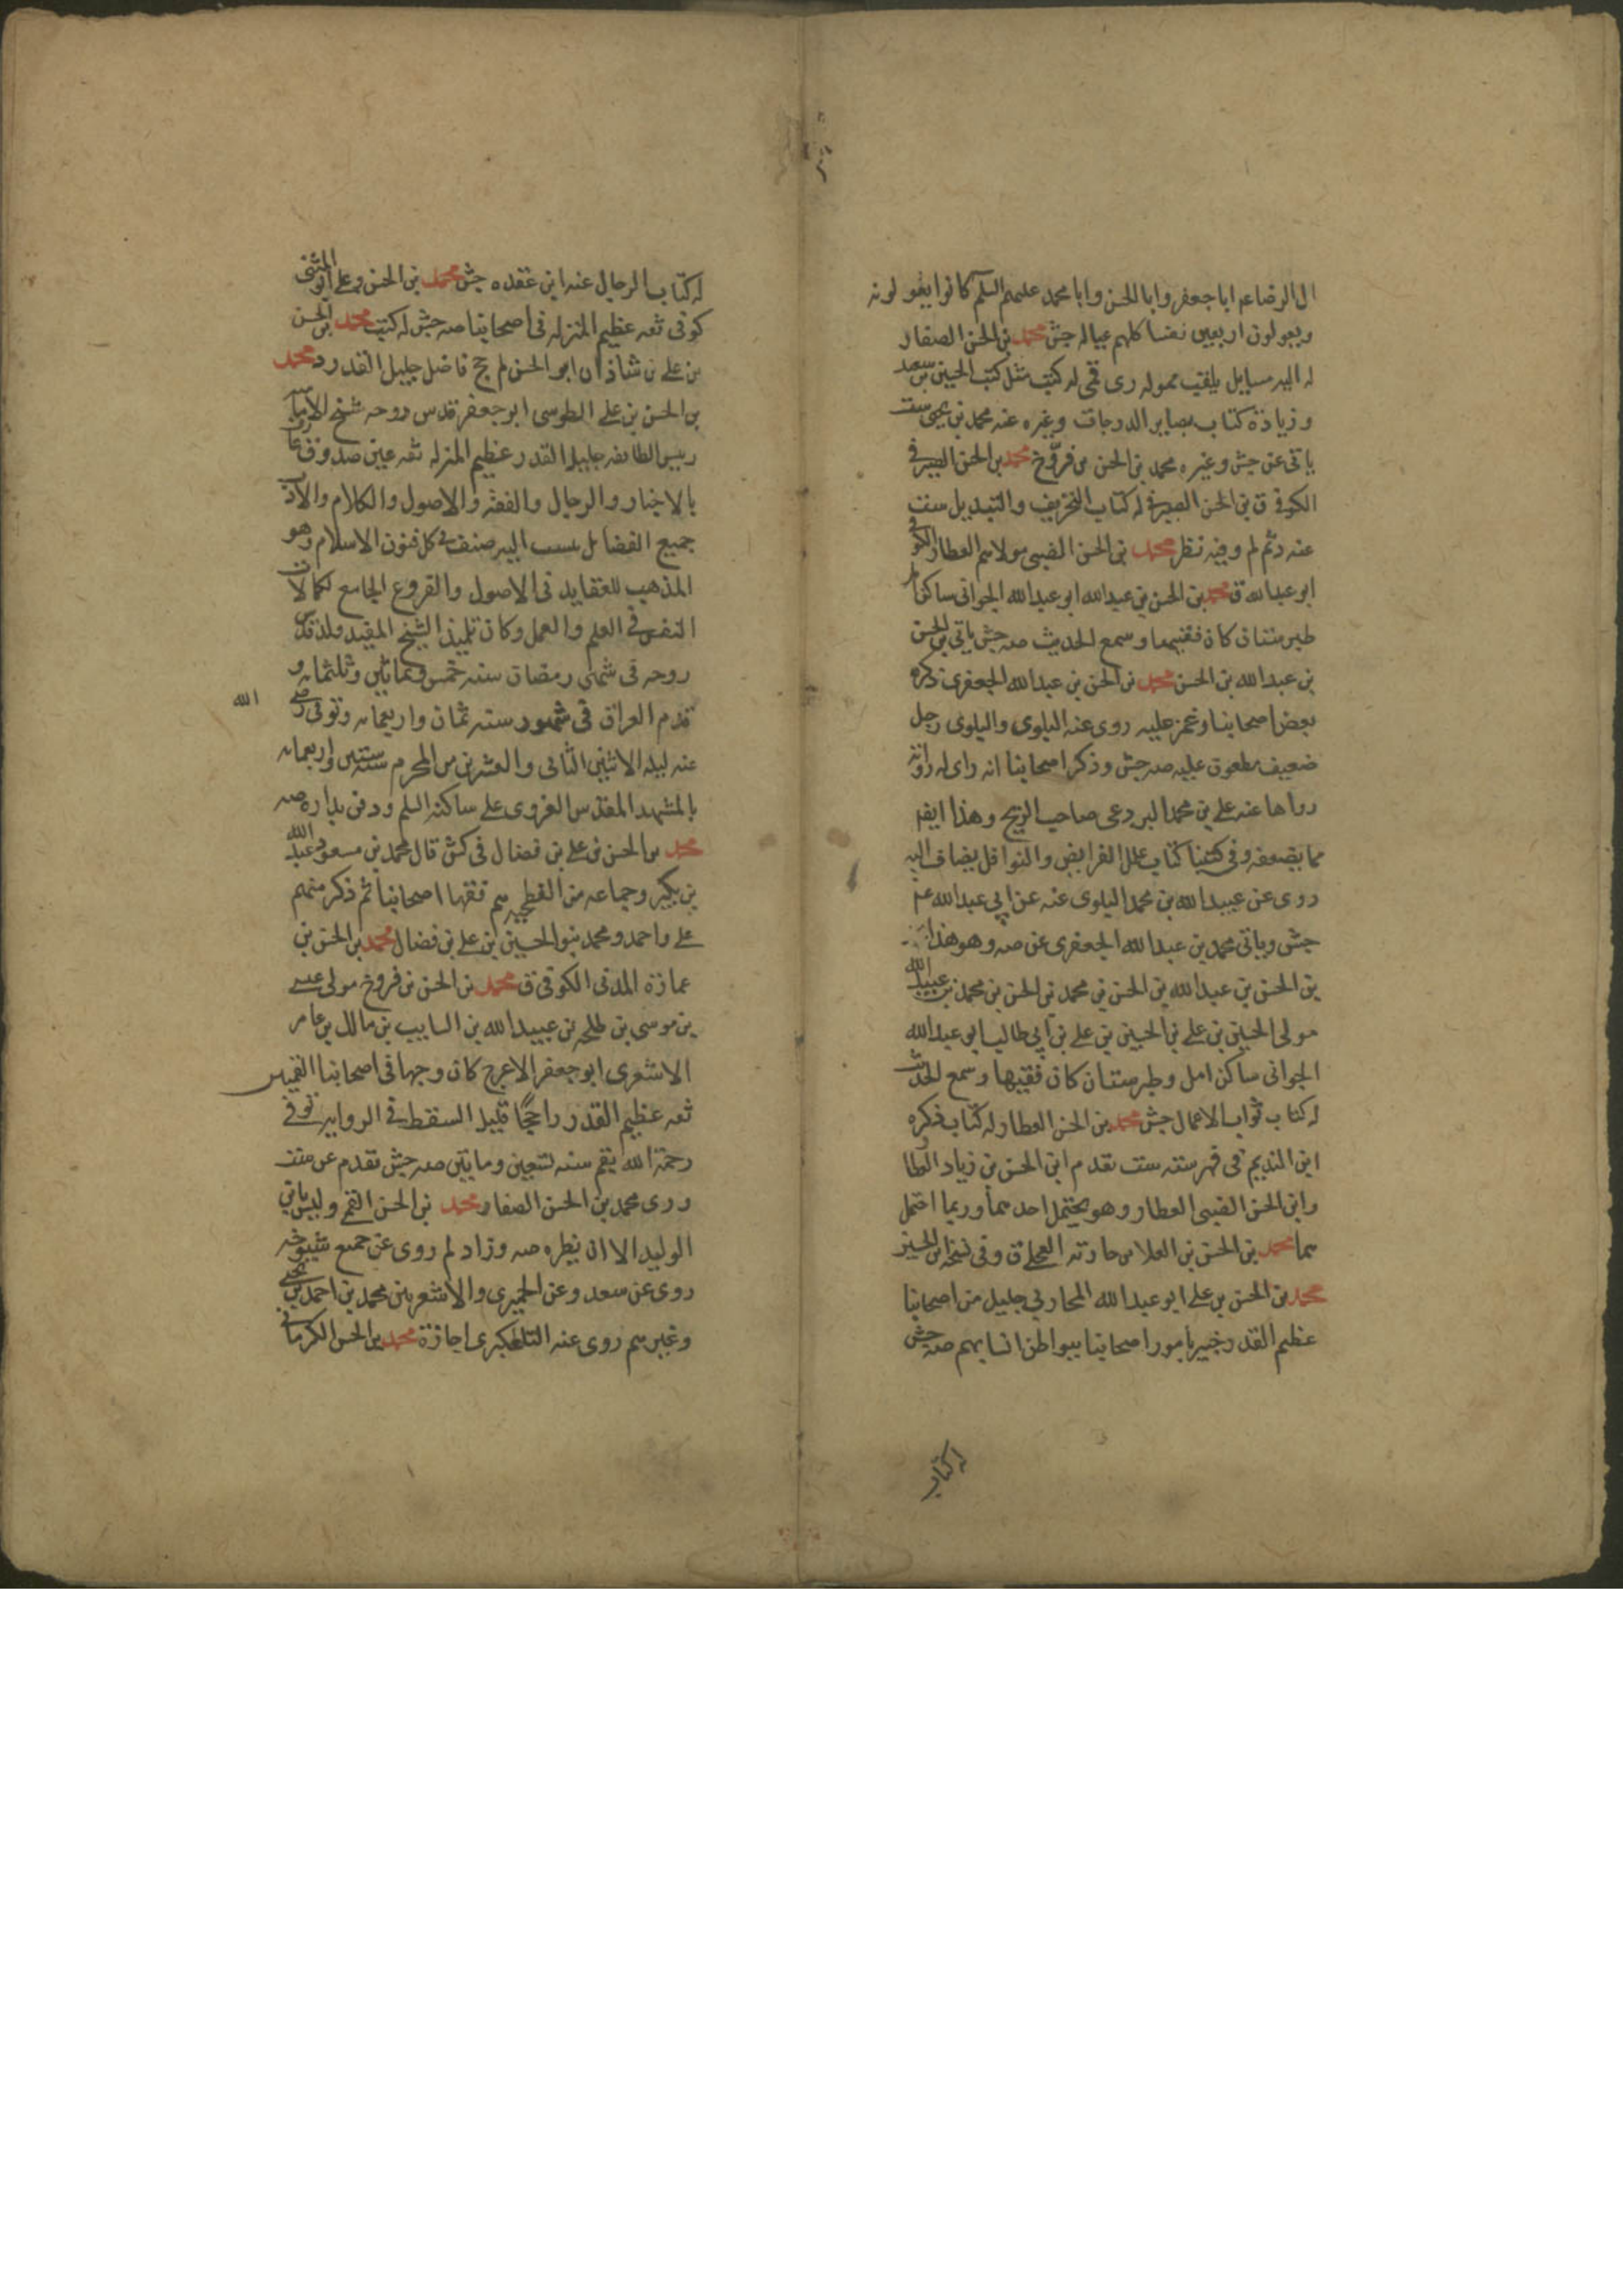 ال الرضا عم ابا جعفر وابا الحسن وابا محمد عليهم السلم كانوا يقولونه
ويعولون اربعين نفسا كلهم عياله جش محمد بن الحسن الصفار
له اليه مسايل يلقب مموله ری قمی له كتب مثل كتب الحسين بن سعيد
وزيادة كتاب بصاير الدرجات وغيره عنه محمد بن يحيى ست
ياتى عن جش وغيره محمد بن الحسن بن فروخ محمد بن الحسن البصرى
الكوفى ق بن الحسن البصرى له كتاب التحريف والتبديل ست
عنه د ثم لم وفيه نظر محمد بن الحسن الضبى مولاهم العطار الكوفى
ابو عبد الله ق محمد بن الحسن بن عبد الله ابو عبد الله الجوانى ساكن امل
طبرستان كان فقيها وسمع الحديث صه جش ياتى بن الحسن
بن عبد الله بن الحسن محمد بن الحسن بن عبد الله الجعفرى ذكره
بعض اصحابنا وغمز عليه روى عنه البلوى والبلوى رجل
ضعيف مطعون عليه صه جش وذكر اصحابنا انه راى له رواية
رواها عنه على بن محمد البردعى صاحب الزنج وهذا ايضا
مما يضعفه وفى كتبنا كتاب علل الفرايض والنوافل يضاف اليه
روى عن عبيد الله بن محمد البلوى عنه عن ابى عبد الله عم
جش وياتى محمد بن عبد الله الجعفرى عن صه وهو هذا
بن الحسن بن عبد الله بن الحسن بن محمد بن الحسن بن محمد بن عبيد الله
مولى الحسين بن على بن الحسين بن على بن ابى طالب ابو عبد الله
الجوانى ساكن امل وطبرستان كان فقيها وسمع الحديث
له كتاب ثواب الاعمال جش محمد بن الحسن العطار له كتاب ذكره
ابن النديم فى فهرسته ست تقدم ابن الحسن بن زياد العطار
وابن الحسن الضبى العطار وهو يحتمل احدهما وربما احتمل
هما محمد بن الحسن بن العلا بن حارثه العجلى ق وفى نسخه ابن الحسين
محمد بن الحسن بن على ابو عبد الله المحاربى جليل من اصحابنا
عظيم القدر خبير بامور اصحابنا ببواطن انسابهم صه جش
له كتاب
له كتاب الرجال عنه ابن عقده جش محمد بن الحسن بن على ابو المثنى
كوفى ثقه عظيم المنزله فى اصحابنا صه جش له كتب محمد بن الحسن
بن على بن شاذان ابو الحسن لم جخ فاضل جليل القدر د محمد
بن الحسن بن على الطوسى ابو جعفر قدس روحه شيخ الاماميه
رييس الطايفه جليل القدر عظيم المنزله ثقه عين صدوق عارف
بالاخبار والرجال والفقه والاصول والكلام والادب
جميع الفضايل ينسب اليه صنف فى كل فنون الاسلام وهو
المذهب للعقايد فى الاصول والفروع الجامع لكمالات
النفس فى العلم والعمل وكان تلميذ الشيخ المفيد ولد قدس
روحه فى شهر رمضان سنه خمس وثمانين وثلثمايه و
قدم العراق فى شهور سنه ثمان واربعمايه وتوفى رضى الله
عنه ليله الاثنين الثانى والعشرين من المحرم سنه ستين واربعمايه
بالمشهد المقدس الغروى على ساكنه السلم ودفن بداره صه
محمد بن الحسن بن على بن فضال فى كش قال محمد بن مسعود عبد الله
بن بكير وجماعه من الفطحيه هم فقها اصحابنا ثم ذكر منهم
على واحمد ومحمد بنو الحسين بن على بن فضال محمد بن الحسن بن
عمارة المدنى الكوفى ق محمد بن الحسن بن فروخ مولى عيسى
بن موسى بن طلحه بن عبيد الله بن السايب بن مالك بن عامر
الاشعرى ابو جعفر الاعرج كان وجها فى اصحابنا القميين
ثقه عظيم القدر راجحًا قليل السقط فى الروايه توفى
رحمة الله بقم سنه تسعين ومايتين صه جش تقدم عن ست
و رى محمد بن الحسن الصفار محمد بن الحسن القمى وليس بابن
الوليد الا انه نظيره صه وزاد لم روى عن جميع شيوخه
روى عن سعد وعن الحميرى والاشعريين محمد بن احمد بن يحيى
وغيرهم روى عنه التلعكبرى اجازة محمد بن الحسن الكرمانى